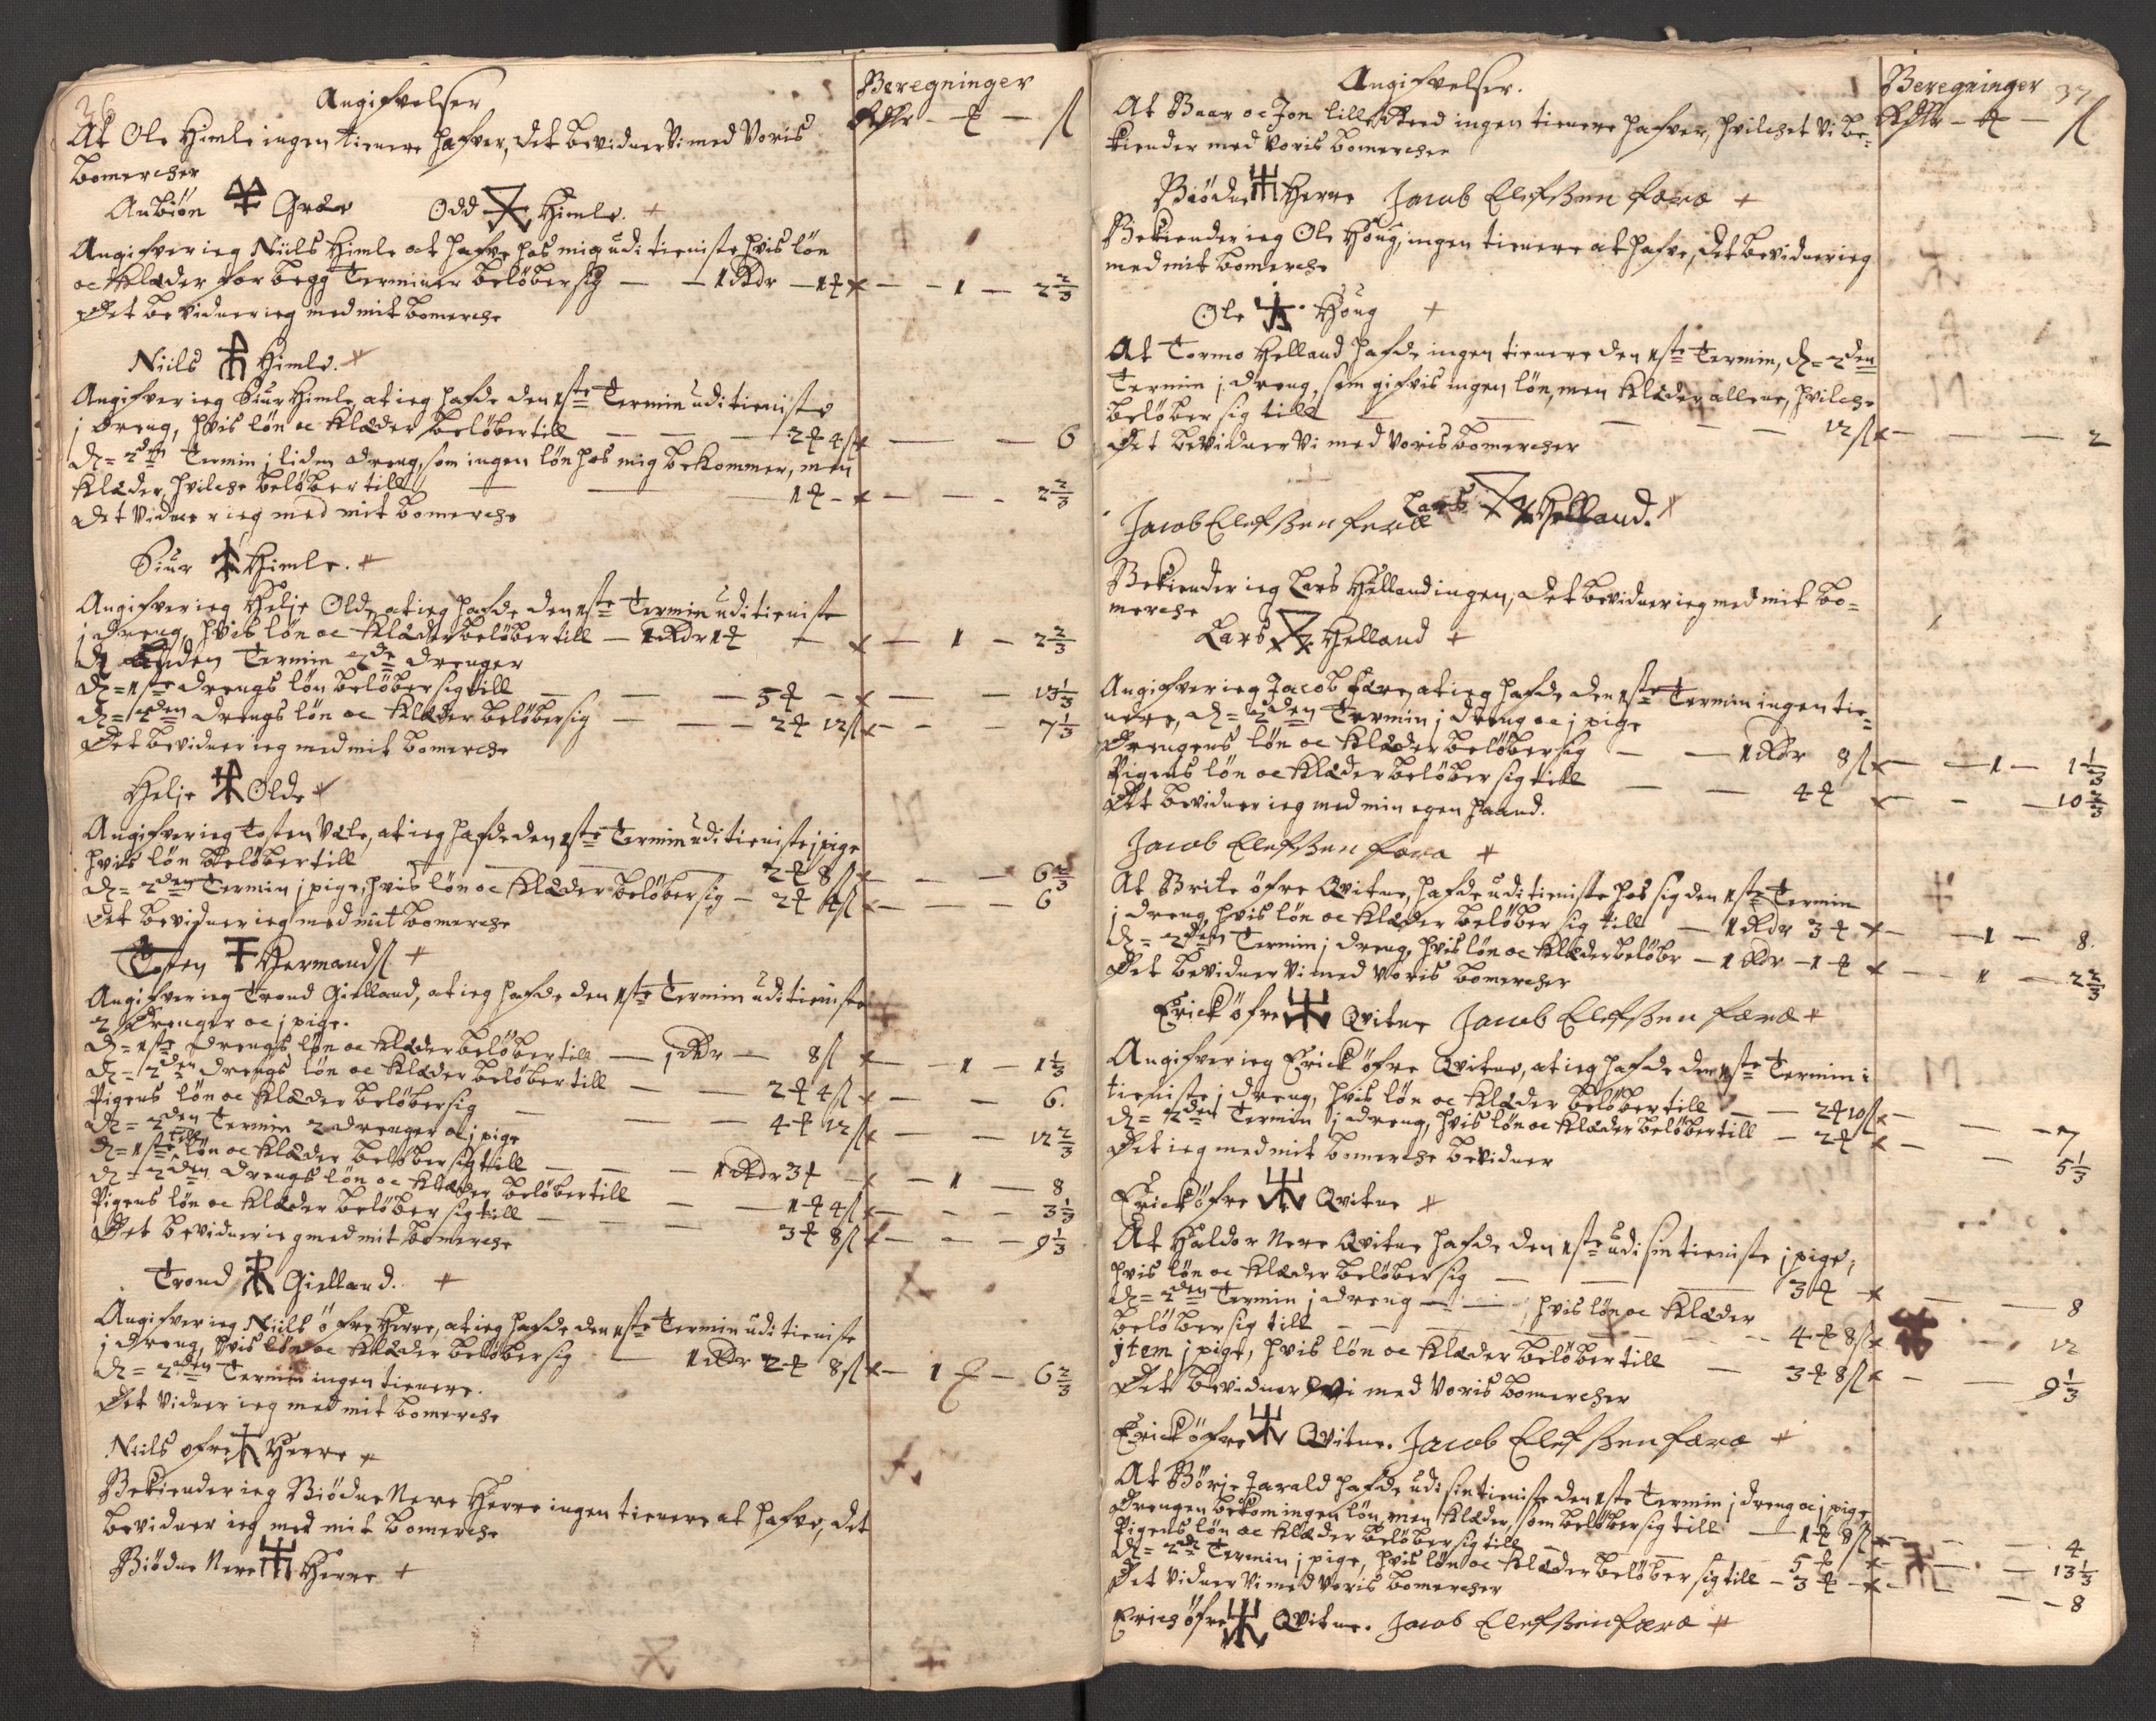 36
Angifvelser
Beregninger
Rdr - ℔ - ſl
At Ole Himle ingen tienere hafver, det bevidner Vi med Voris
bomercher
Anbiøn Græe Odd Himle.
Angifver ieg Niils Himle at hafve hos mig udi tieniste hvis løn
oc Klæder for begge Terminer beløber sig — 1 Rdr - 1 ℔ - 1 - 2 2/3
Det bevidner ieg med mit bomerche
Niils Himle.
Angifver ieg Siur Himle, at ieg hafde den 1ste Termin udi tieniste
j dreng, hvis løn oc Klæder beløber till — 2 ℔ 4 ſl — 6
D= 2den Termin j liden dreng, som ingen løn hos mig bekommer, men
Klæder, hvilche beløber till — 1 ℔ - 2 2/3
Det vidner ieg med mit bomerche
Siur Himle.
Angifver ieg Helje Olde, at ieg hafde den 1ste Termin udi tieniste
j dreng, hvis løn oc Klæder beløber till — 1 Rdr 1 ℔ — 1 - 2 2/3
D anden Termin 2de drenger
D= 1ste drengs løn beløber sig till — 5 ℔ - 13 1/3
D= 2den drengs løn oc Klæder beløber sig — 2 ℔ 12 ſl - 7 1/3
Det bevidner ieg med mit bomerche
Helje Olde
Angifver ieg Tosten Væle, at ieg hafde den 1ste Termin udi tieniste j pige
hvis løn beløber till — 2 ℔ 8 ſl — 6 2/3
D= 2den Termin j pige, hvis løn oc Klæder beløber sig - 2 ℔ 4 ſl — 6
Det bevidner ieg med mit bomerche
Tosten Hermandſl
Angifver ieg Trond Gielland, at ieg hafde den 1ste Termin udi tieniste
2 Drenger oc j pige.
D= 1ste drengs løn oc Klæder beløber till — 1 Rdr - 8 ſl — 1 - 1 1/3
D= 2den drengs løn oc Klæder beløber till — 2 ℔ 4 ſl — 6.
Pigens løn oc Klæder beløber sig — 4 ℔ 12 ſl — 12 2/3
D= 2den Termin 2 drenger oc j pige
D= 1stes løn oc Klæder beløber sig till — 1 Rdr 3 ℔ - 1 — 8
D= 2den drengs løn oc Klæder beløber till — 1 ℔ 4 ſl — 3 1/3
Pigens løn oc Klæder beløber sig till — 3 ℔ 8 ſl — 9 1/3
Det bevidner ieg med mit bomerche
Trond Gielland.
Angifver ieg Niils øfre Herre, at ieg hafde den 1ste Termin udi tieniste
j dreng, hvis løn oc Klæder beløber sig — 1 Rdr 2 ℔ 8 ſl - 1 ℔ - 6 2/3
D= 2den Termin ingen tienere.
Det vidner ieg med mit bomerche
Niils øfre Herre
Bekiender ieg Biødne Nere Herre ingen tienere at hafve, det
bevidner ieg med mit bomerche
Biødne Nere Herre
37
Angifvelser.
Beregninger
Rdr - ℔ - ſl
At Baar oc Jon lille ingen tienere hafver, hvilchet Vi be-
kiender med Voris bomercher
Biødne Herre Jacob Elefßen færæ
Bekiender ieg Ole Houg, ingen tienere at hafve, det bevidner ieg
med mit bomerche
Ole Houg
At Tormo Helland hafde ingen tienere den 1ste Termin, D= 2den
Termin j dreng, som gifvis ingen løn, men Klæder allene, hvilche
beløber sig till — 12 ſl — 2
Det bevidner Vi med Voris bomercher
Jacob Elefßen færæ Lars Helland.
Bekiender ieg Lars Helland ingen, det bevidner ieg med mit bo=
merche
Lars Helland
Angifver ieg Jacob Fære, at ieg hafde den 1ste Termin ingen tie=
nere, D= 2den Termin j dreng oc j pige
Drengens løn oc Klæder beløber sig — 1 Rdr 8 ſl — 1 - 1 1/3
Pigens løn oc Klæder beløber sig till — 4 ℔ — 10 2/3
Det bevidner ieg med min egen haand.
Jacob Elefßen færæ
At Brite øfre Qvitne, hafde udi tieniste hos sig den 1ste Termin
j dreng, hvis løn oc Klæder beløber sig till — 1 Rdr 3 ℔ — 1 — 8.
D= 2den Termin j dreng, hvis løn oc Klæder beløbr — 1 Rdr - 1 ℔ — 1 - 2 2/3
Det bevidner Vi med Voris bomercher
Erick øfre Qvitne Jacob Elefßen færæ
Angifver ieg Erick øfre Qvitne, at ieg hafde den 1ste Termin i
tieniste j dreng, hvis løn oc Klæder beløber till — 2 ℔ 10 ſl — 7
D= 2den Termin j dreng, hvis løn oc Klæder beløber till — 2 ℔ — 5 1/3
Det ieg med mit bomerche bevidner
Erick øfre Qvitne
At Haldor Nere Qvitne hafde den 1ste udi sin tieniste j pige,
hvis løn oc Klæder beløber sig — 3 ℔ — 8
D= 2den Termin j dreng — hvis løn oc Klæder
beløber sig till — 4 ℔ 8 ſl — 12
jtem j pige, hvis løn oc Klæder beløber till — 3 ℔ 8 ſl — 9 1/3
Det bevidner Vi med Voris bomercher
Erick øfre Qvitne. Jacob Elefßen færæ
At Børje Jarald hafde udi sin tieniste den 1ste Termin j dreng oc j pige
Drengen bekom ingen løn, men Klæder, som beløber sig till — 1 ℔ 8 ſl — 4
Pigens løn oc Klæder beløber sig till — 5 ℔ — 13 1/3
D= 2de Termin j pige, hvis løn oc Klæder beløber sig till - 3 ℔ — 8
Det vidner Vi med Voris bomercher
Erich øfre Qvitne. Jacob Elefßen færæ